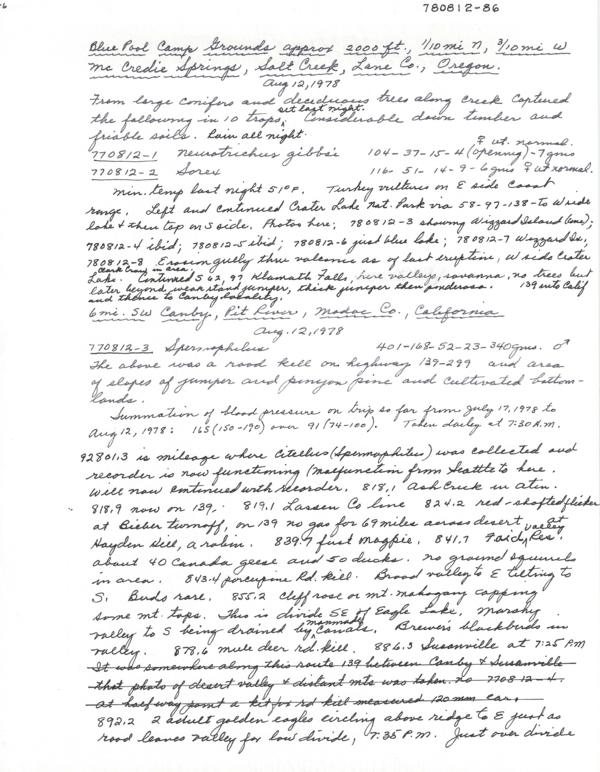 780812-86
Blue Pool Camp Grounds approx 2000 ft., 1/10 mi N, 3/10 mi W
Mc Credie Springs, Salt Creek, Lane Co., Oregon.
Aug 12, 1978
From large conifers and deciduous trees along creek captured
the following in 10 traps set last night. Considerable down timber and
friable soils. Rain all night.
♀ wt. normal.
770812-1 Neurotrichus gibbsi 104-37-15-4 (opening)-7 gms
770812-2 Sorex 116-51-14-9-6 gms ♀ wt normal.
Min. temp last night 51°F. Turkey vultures on E side Coast
range. Left and continued Crater Lake Nat. Park via 58-97-138- to W side
lake & then top on S side. Photos here; 770812-3 showing Wizzard Island (cone);
770812-4 ibid; 770812-5 ibid; 770812-6 just blue lake; 770812-7 Wizzard Is,
770812-8 Erosion gully thru volcanic as of last eruption, W side Crater
Lake. Continued S 62, 97 Klamath Falls, here valleys, savanna, no trees but
later beyond juniper, thick juniper then ponderosa. 139 into Calif
and thence to Canby locality.
6 mi. SW Canby, Pit River, Modoc Co., California
Aug. 12, 1978
770812-3 Spermophilus 401-168-52-23-340 gms. ♂
The above was a road kill on highway 139-299 and area
of slopes of juniper and pinyon pine and cultivated bottom-
lands.
Summation of blood pressure on trip so far from July 17, 1978 to
Aug 12, 1978: 165 (150-190) over 91 (74-100). Taken daily at 7:30 A.M.
92801.3 is mileage where Citellus (Spermophilus) was collected and
recorder is now functioning (malfunction from Seattle to here.
Will now continued with recorder. 818.1 Ash Creek in Adin.
818.9 now on 139. 819.1 Lassen Co line 824.2 red-shafted flicker
at Bieber turnoff, on 139 no gas for 69 miles across desert valley. At
Hayden Hill, a robin. 839.7 first magpie. 841.7 Said Res.
about 40 Canada geese and 50 ducks. No ground squirrels
in area. 843.4 porcupine Rd. kill. Broad valley to E tilting to
S. Buds rare. 855.2 cliff rose or mt. mahogany capping
some mt. tops. This is divide SE of Eagle Lake. Marshy
valley to S being drained by manmade canals. Brewer's blackbirds in
valley. 878.6 mule deer rd. kill. 886.3 Susanville at 7:25 PM
It was somewhere along this route 139 between Canby & Susanville
that photo of desert valley & distant mts was taken. no 770812-4.
At half way point a kit fox rd kill measured 120 mm ear.
892.2 2 adult golden eagles circling above ridge to E just as
road leaves valley for low divide, 7:35 P.M. Just over divide